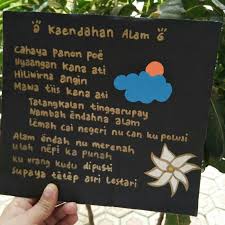 Kaendahan Alam
Cahaya panon poé
Nyaangan kana ati
Hiliwirna angin
Mawa tiis kana ati
Tatangkalan tinggarupay
Nambah éndahna alam
Lemah cai negeri nu can ku polusi
Alam éndah nu merenah
ulah népi ka punah
ku urang kudu dipusti
supaya tetep asri lestari